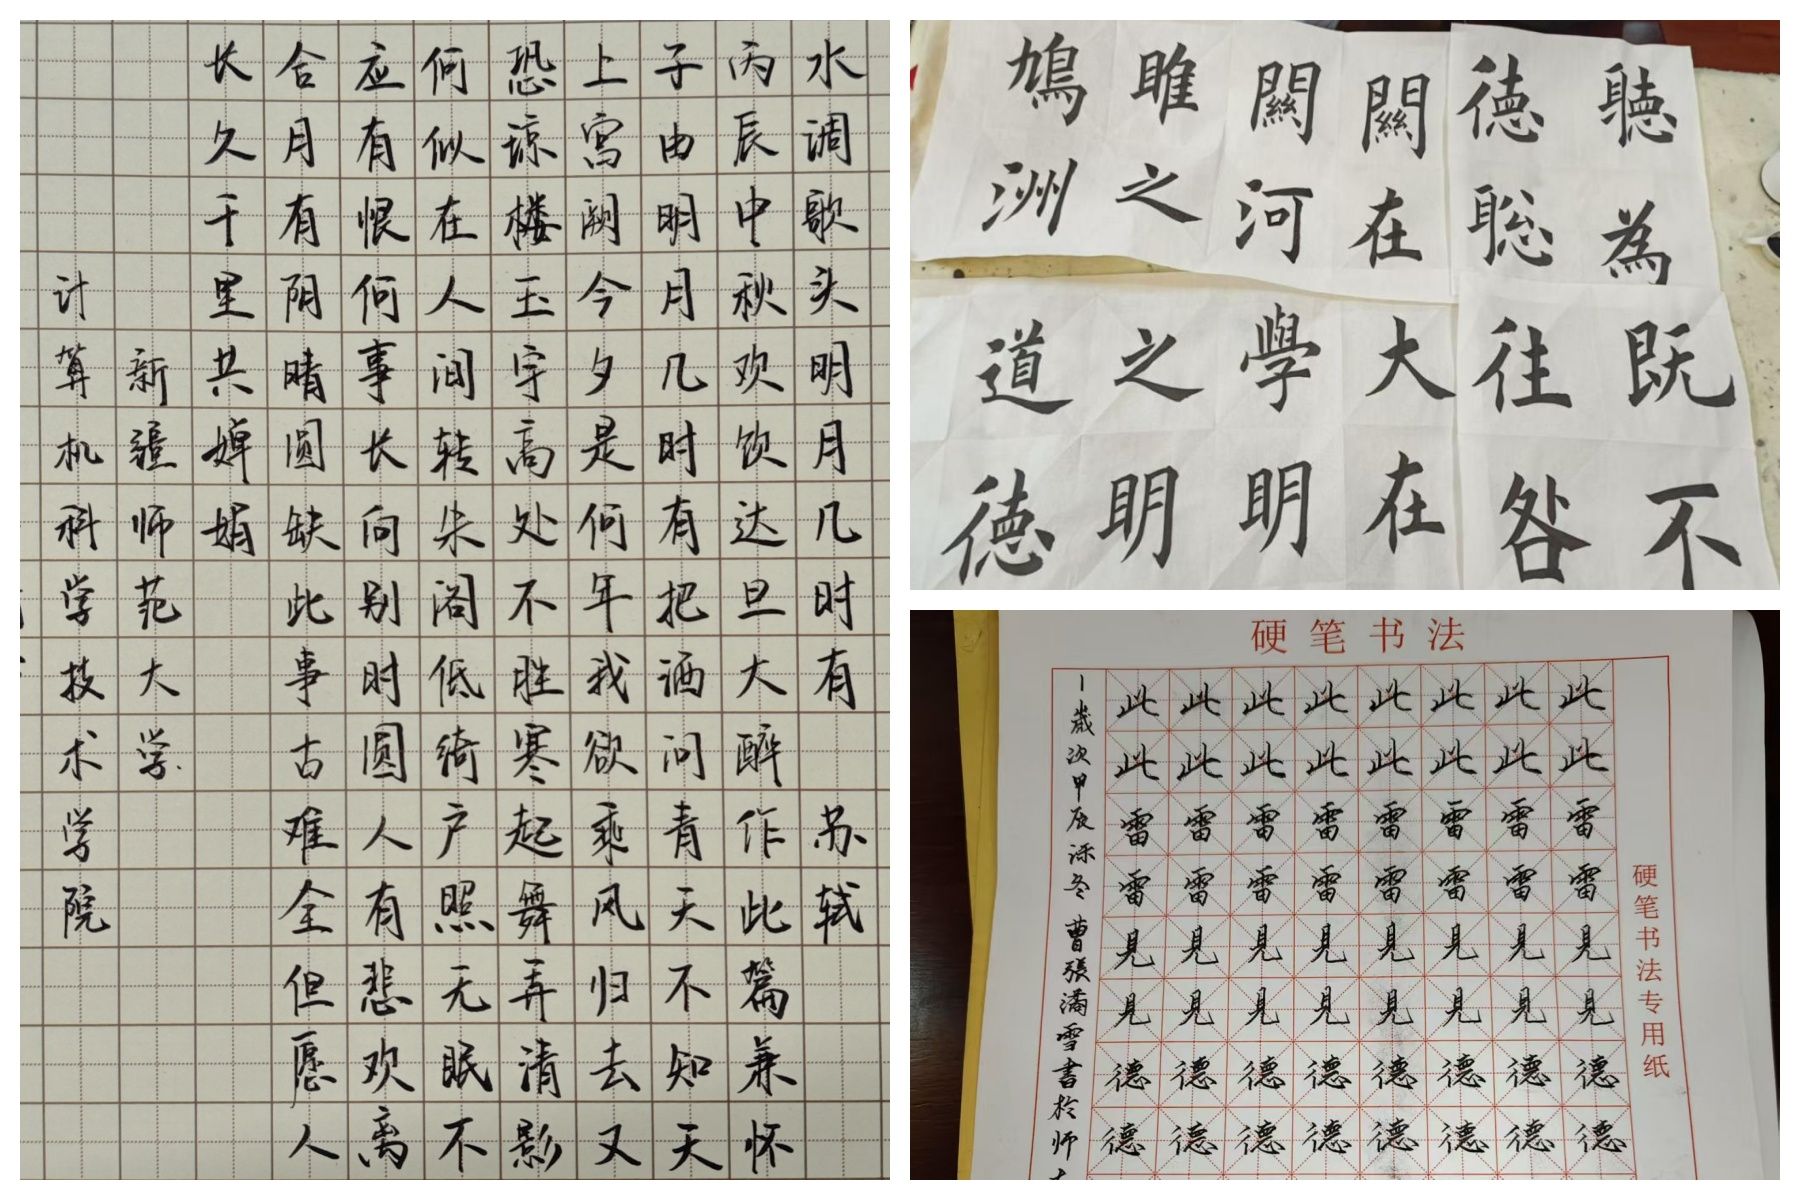 水调歌头明月几时有 苏轼
丙辰中秋欢饮达旦大醉作此篇兼怀
子由明月几时有把酒问青天不知天
上宫阙今夕是何年我欲乘风归去又
恐琼楼玉宇高处不胜寒起舞弄清影
何似在人间转朱阁低绮户照无眠不
应有恨何事长向别时圆人有悲欢离
合月有阴晴圆缺此事古难全但愿人
长久千里共婵娟
新疆师范大学
计算机科学技术学院
聽德
為聡
關關雎鳩
在河之洲
既往
不咎
大學之道
在明明德
硬笔书法
此此此此此此此此
此此此此此此此此
雷雷雷雷雷雷雷雷
雷雷雷雷雷雷雷雷
見見見見見見見見
見見見見見見見見
德德德德德德德德
德德德德德德德德
硬笔书法专用纸
歲次甲辰深冬 曹張滿雪書於师